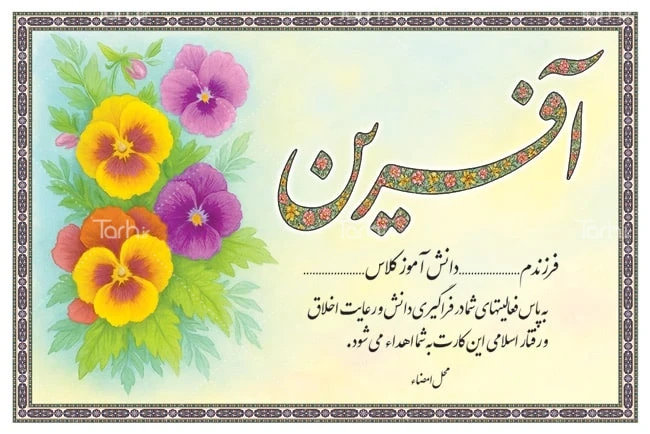 آفرین
فرزندم....................دانش آموز کلاس....................
به پاس فعالیتهای شما در فراگیری دانش و رعایت اخلاق
و رفتار اسلامی این کارت به شما اهداء می شود.
محل امضاء
Tarh